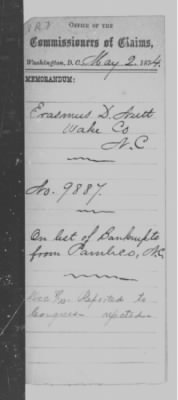 OFFICE OF THE
Commissioners of Claims,
Washington, D.C. May 2. 1874.
MEMORANDUM:
Erasmus D.
Wake Co
N.C
No. 9887.
On list of Bankrupts
from Pamlico, N.C.
Reported to
Congress rejected